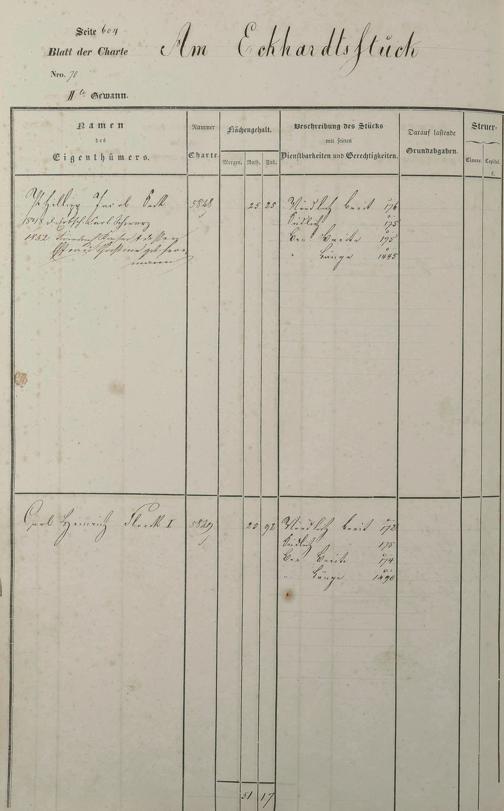 Seite 604
Am Eckhardtsstuck
Blatt der Charte
Nro. 70
II te Gewann.
Namen
des
Eigenthümers.
Nummer
Charte
Flächengehalt.
Morgen.
Ruth.
Fuß.
Beschreibung des Stücks
mit seinen
Dienstbarkeiten und Gerechtigkeiten.
Darauf lastende
Grundabgaben.
Steuer-
Classe.
Capital.
f.
Philipp Jacob 5848 25 25 Nördlich breit 176
Südlich 175
1852 Ger. Breite 175
" Länge 1445
Carl Heinrich Fleck I 5849 25 92 Nördlich breit 172
Südlich 175
Ger. Breite 174
" Länge 1490
51 17